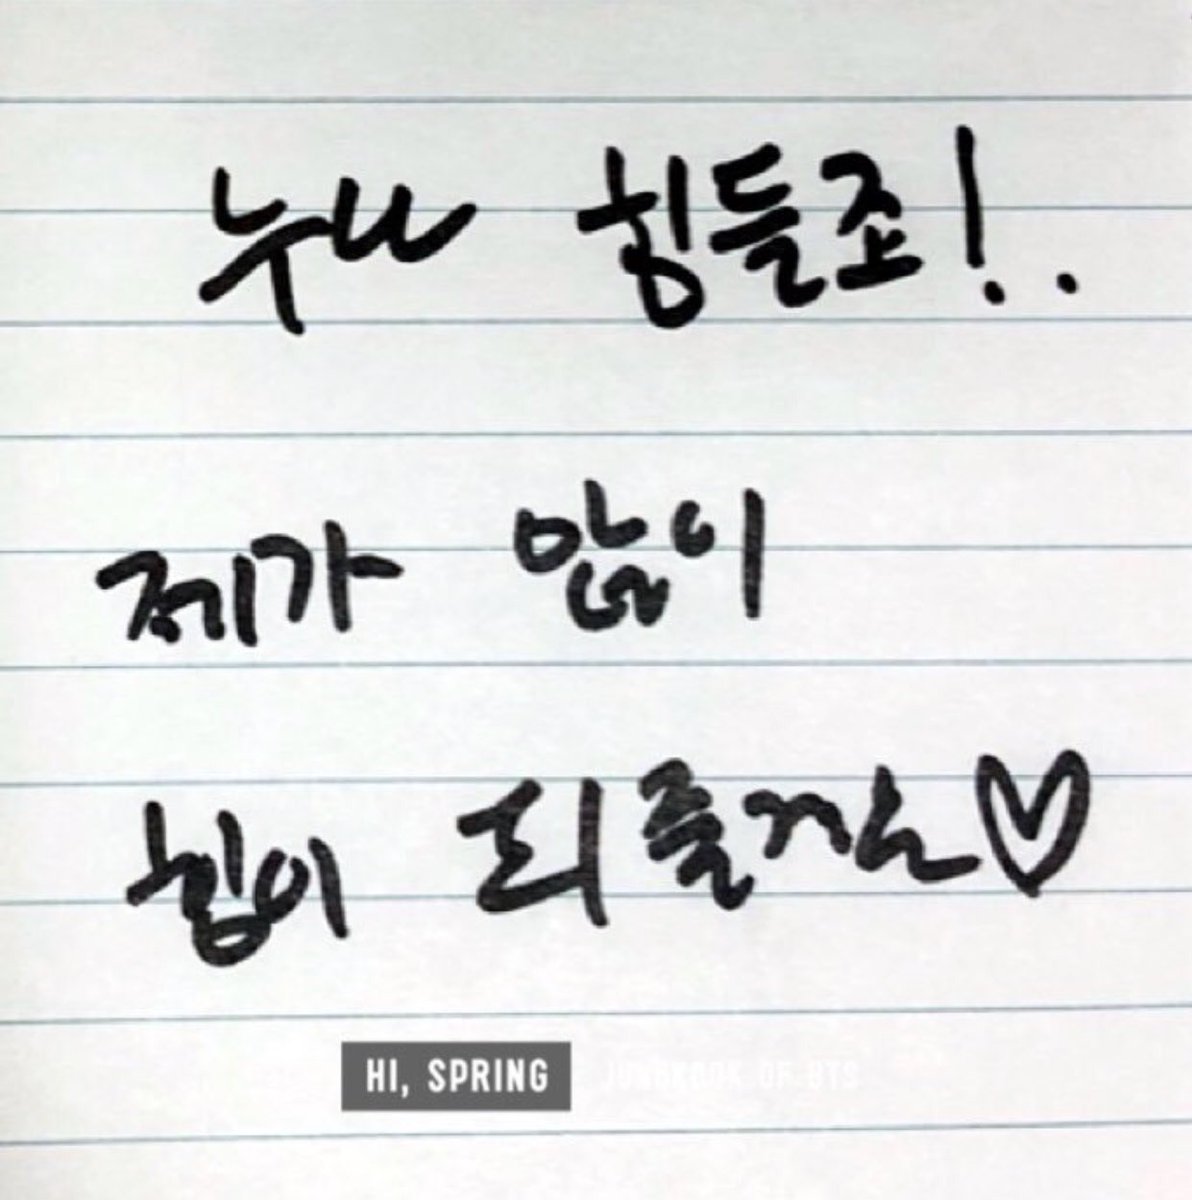 누나 힘들죠!.
제가 많이
힘이 되줄께요♡
HI, SPRING JUNGKOOK OF BTS